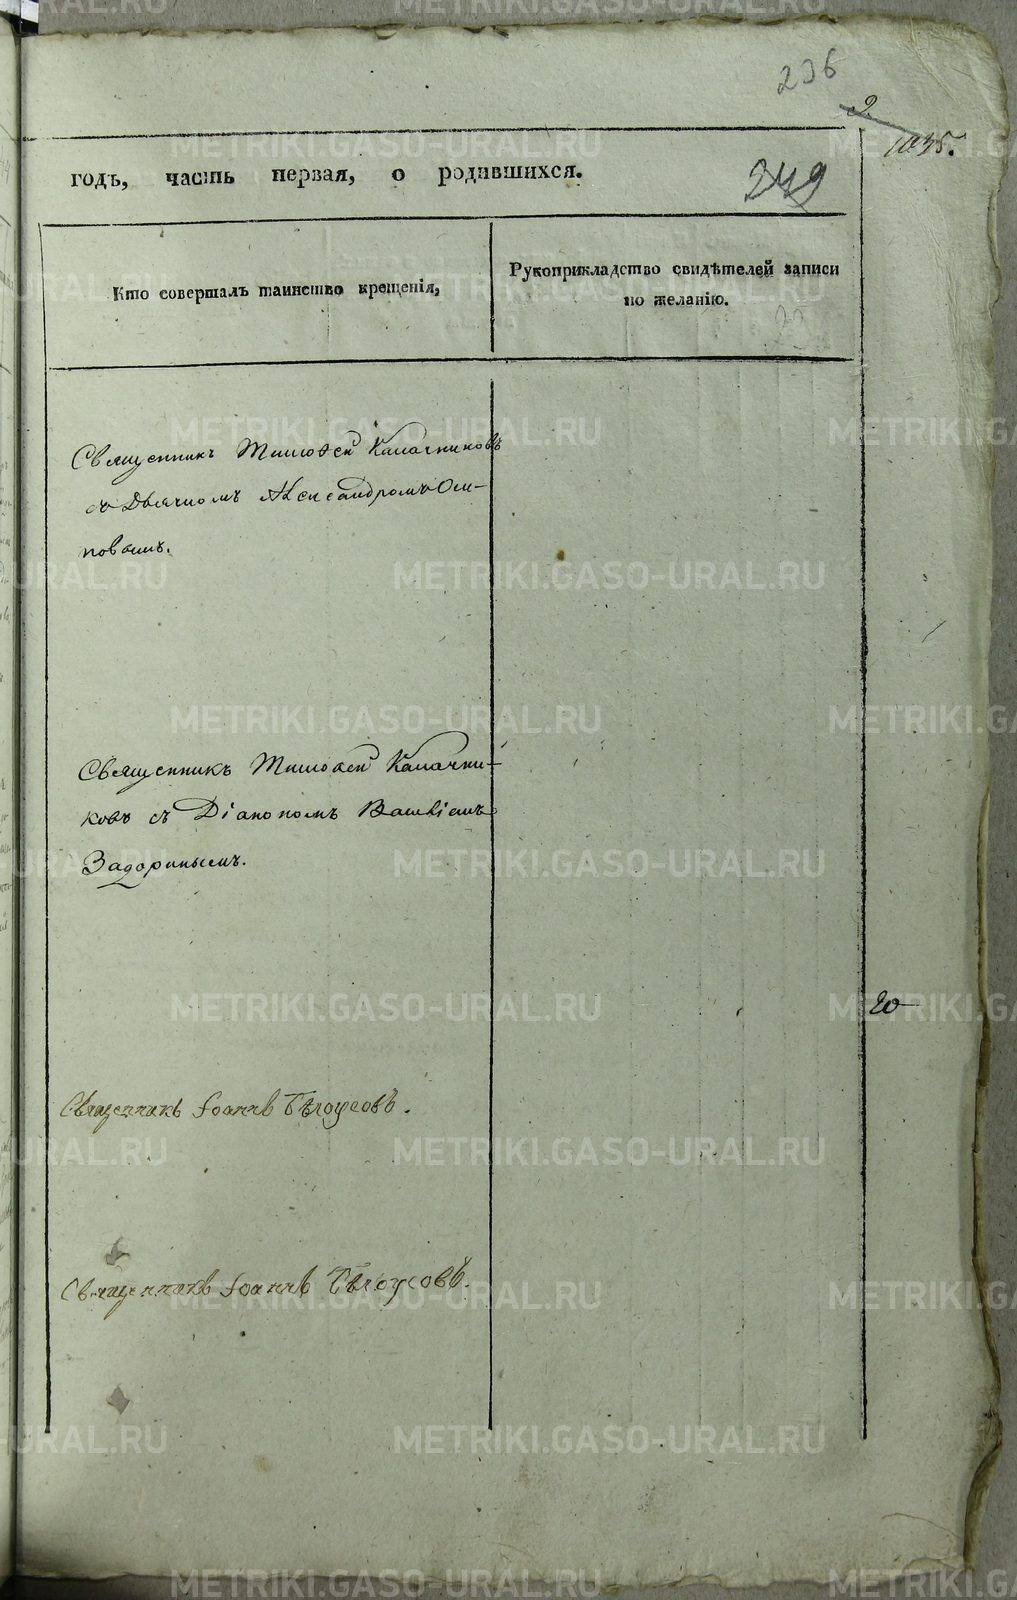 236
2
1035.
годъ, часть первая, о родившихся.
249
Кто совершалъ таинство крещенія,
Рукоприкладство свидѣтелей записи
по желанію.
Священникъ Тимоѳей Калачниковъ
съ Дьячкомъ Александромъ Оси-
повымъ.
Священникъ Тимоѳей Калачни-
ковъ съ Діакономъ
Задоринымъ.
20
Священникъ Іоаннъ Бѣлоусовъ.
Священникъ Іоаннъ Бѣлоусовъ.
METRIKI.GASO-URAL.RU